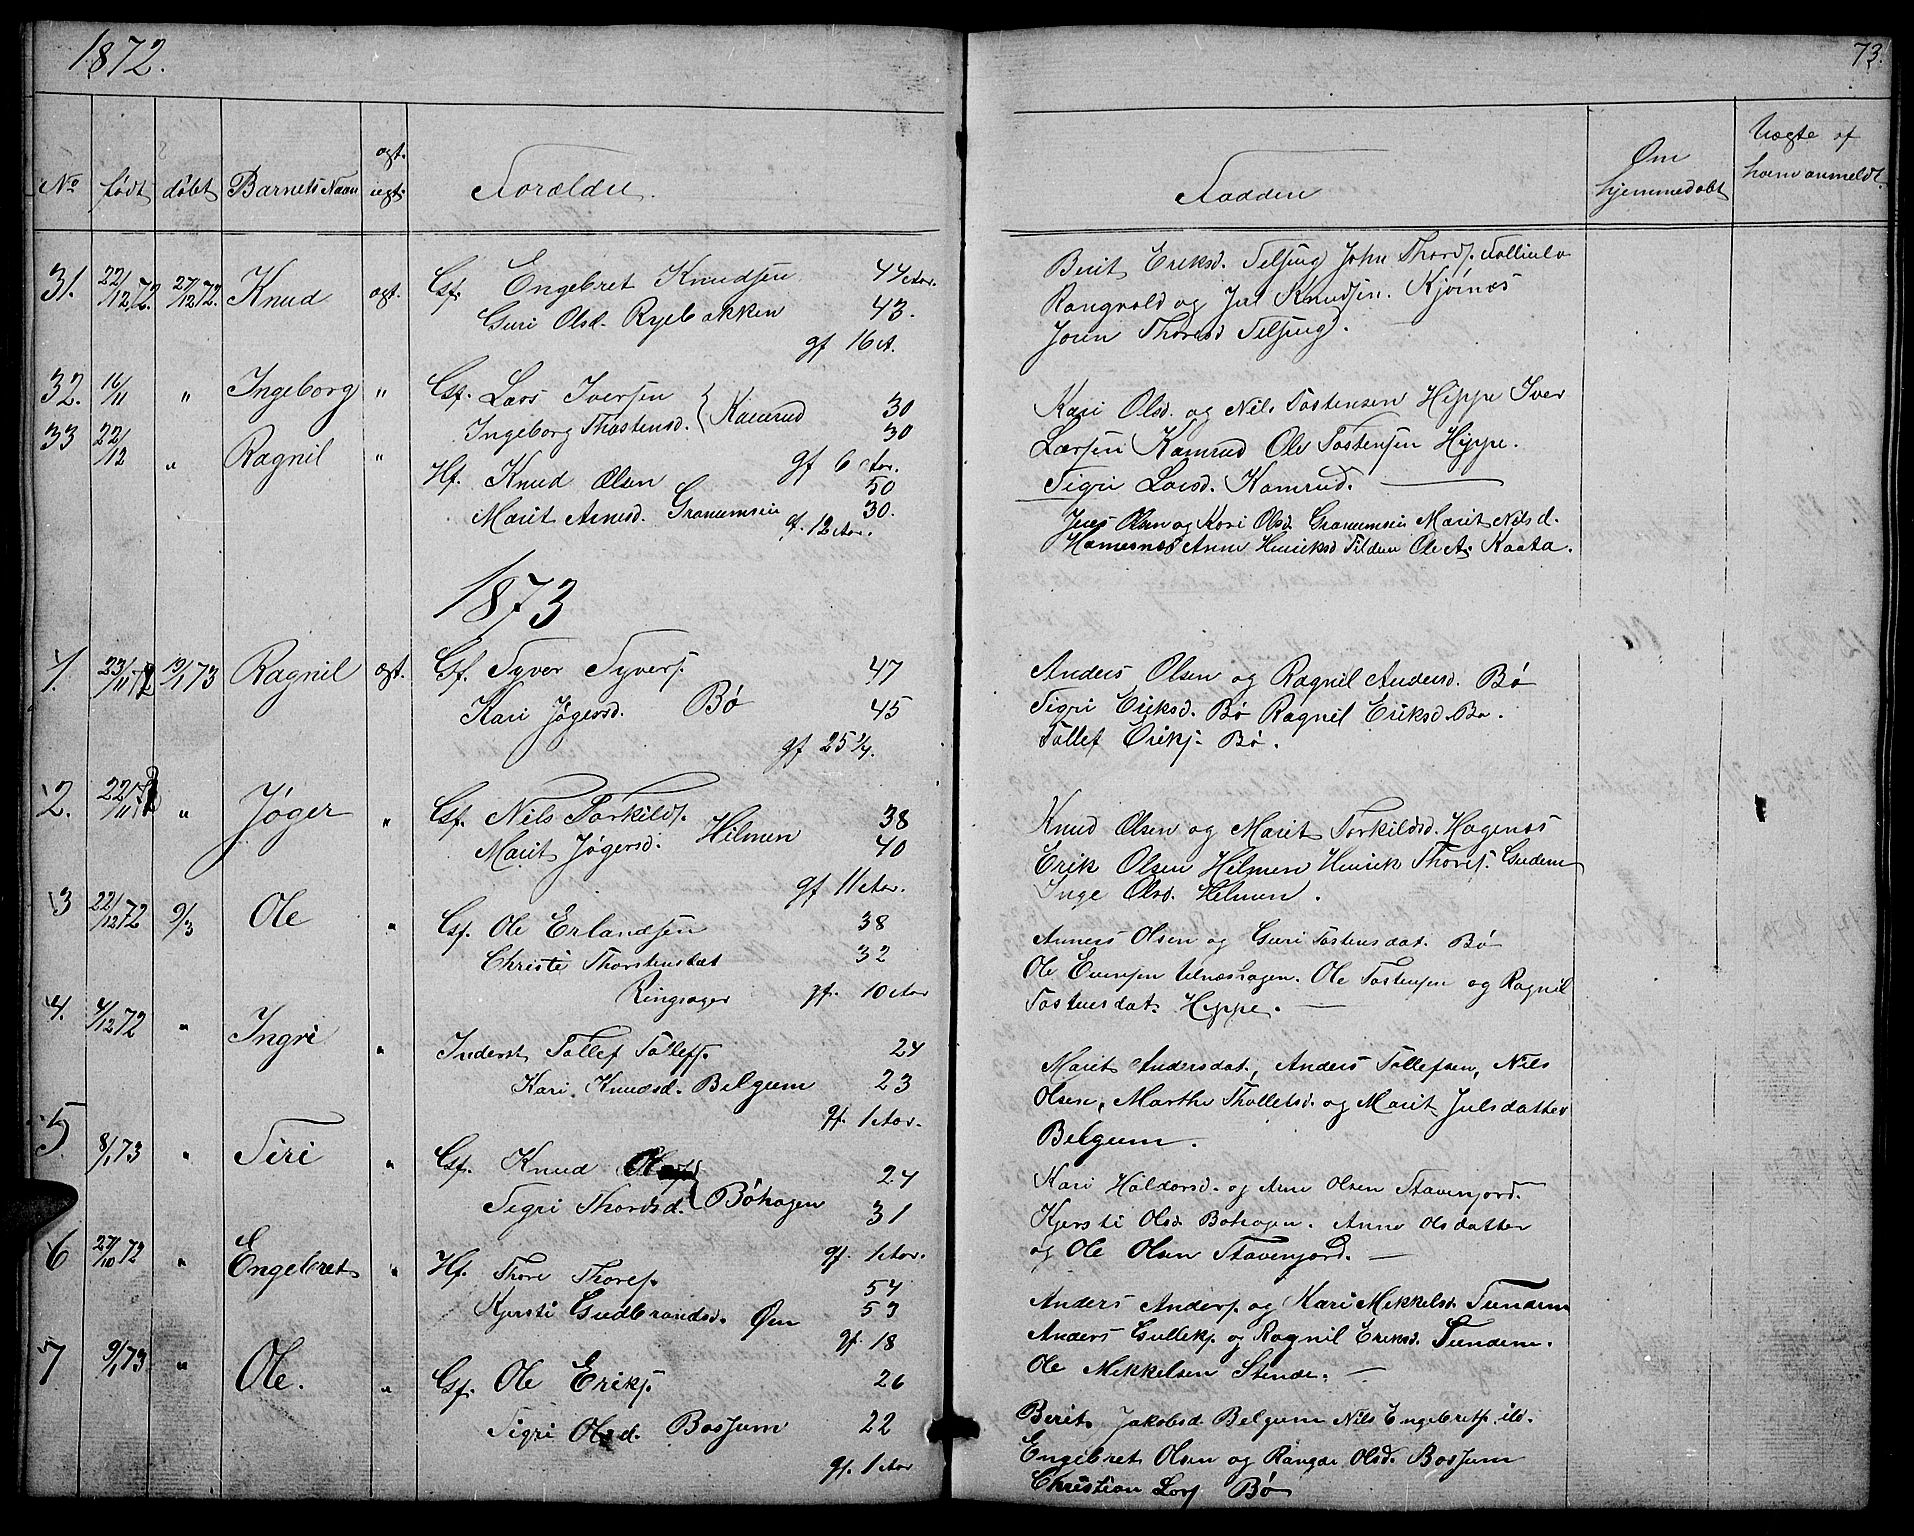 1872.
No født døbt Barnets Navn ægt. uægt. Forældre
31. 22/12 72. 27/12 72. Knud ægt. Gsf. Engebret Knudsen 44 Aar.
Guri Olsd. Ryebakken 43.
gf 16 A.
32. 16/11 " Ingeborg " Gsf. Lars Iversen 30
Ingeborg Thostensd. Kamrud 30
gf 6 Aar.
33 22/12 " Ragnil " Hf. Knud Olsen 50
Marit Arnesd. Granumseie 30.
gf. 12 Aar.
1873
1. 23/11 72 19/1 73 Ragnil ægt. Gf. Syver Syvers. 47
Kari Jøgersd. Bø 45
gf 25 1/4.
2. 22/11 72 " Jøger " Gsf. Nils Torkilds. 38
Marit Jøgersd. Hilmen 40
gf 11 Aar.
3 22/12 72 9/3 Ole " Gsf. Ole Erlandsen 38
Christi Thorstensdat 32
Ringsager gf. 10 Aar
4. 4/12 72 " Ingri " Inderst Tollef Tollefs. 24
Kari Knudsd. Belgum 23
gf. 1 Aar.
5. 8/1 73 " Siri " Gsf. Knud Ols 24
Sigri Thordsd. Bøhagen 31
gf. 1 Aar.
6 27/10 72 " Engebret " Hf. Thore Thores. 54
Kjersti Gudbrandsd. Øm 53
gf. 18
7 9/1 73 " Ole. " Gsf. Ole Eriks. 26
Sigri Olsd. Bossum 22
gf. 1 Aar
73.
Faddere Om hjemmedøbt Uægte af hvem anmeldt.
Berit Eriksd. John Thords.
Rangvold og Jul Knudsen. Kjørnæs
Joren Thoresd
Kari Olsd. og Nils Tostensen Hippe Iver
Larsen Kamrud Ole Tostensen Hippe.
Sigri Larsd. Kamrud.
Jens Olsen og Kari Olsd. Granumseie Marit Nilsd.
Hamesnes Anne Henriksd Tilden Ole A. Kaata.
Anders Olsen og Ragnil Andersd. Bø
Sigri Eriksd. Bø Ragnil Eriksd. Bø.
Tollef Eriks. Bø.
Knud Olsen og Marit Torkildsd. Hagenæs
Erik Olsen Hilmen Henrik Thores. Gudem
Inge Olsd. Helmen.
Anners Olsen og Guri Tostensdat. Bø
Ole Evensen Ulnæshagen. Ole Tostensen og Ragnil
Tostensdat. Hippe.
Marit Andersdat, Anders Tollefsen, Nils
Olsen, Marthe Thollefsd. og Marit Julsdatter
Belgum.
Kari Haldorsd. og Arne Olsen Stavenjord.
Kjersti Olsd Bøhagen. Anne Olsdatter
og Ole Olsen Stavenjord.
Anders Anders. og Kari Mikkelsd. Sundem
Anders Gulleks. og Ragnil Eriksd. Sundem.
Ole Mikkelsen Stende.
Berit Jakobsd Belgum Nils Engebrets. ib.
Engebret Olsen og Rangdi Olsd. Bossum
Christian Lars Bø